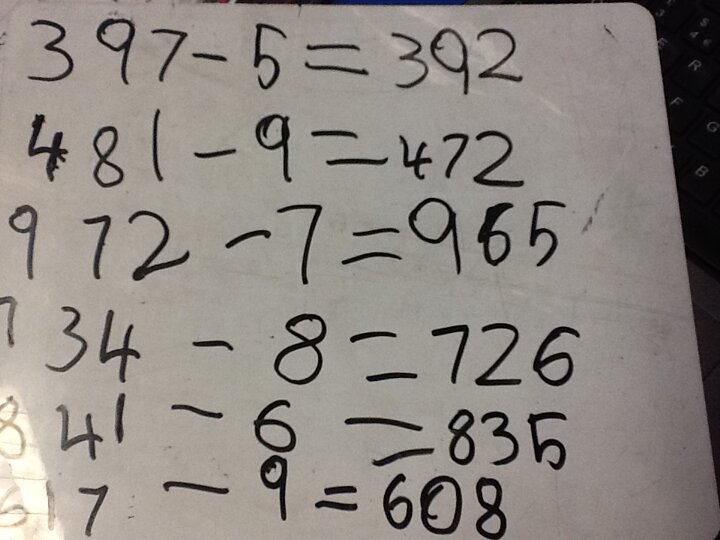 397-5=392
481-9=472
972-7=965
734-8=726
841-6=835
617-9=608
R
F
G
B